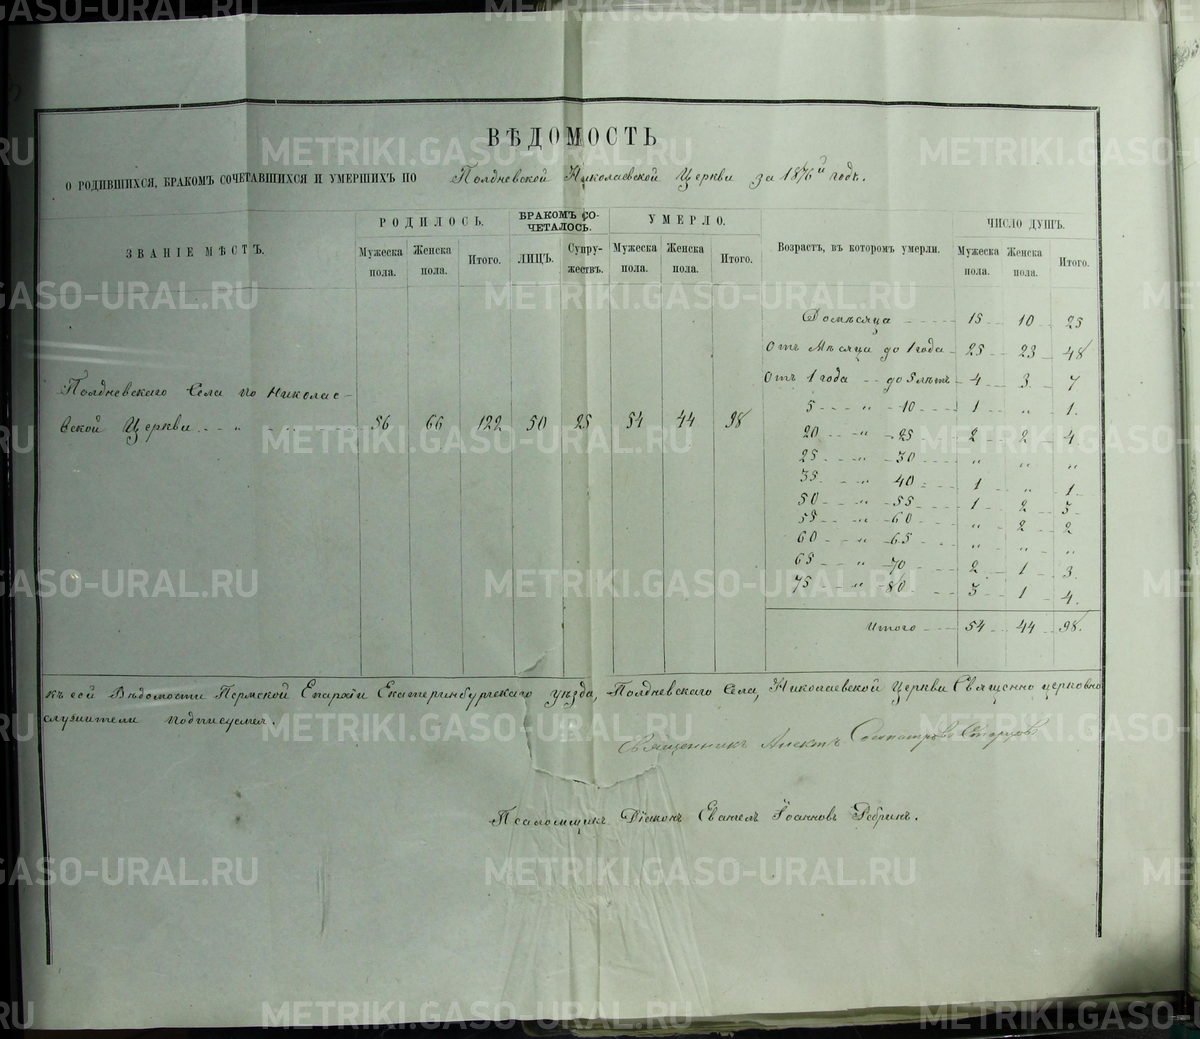 ВѢДОМОСТЬ
О РОДИВШИХСЯ, БРАКОМЪ СОЧЕТАВШИХСЯ И УМЕРШИХЪ ПО Полдневской Николаевской Церкви за 1876й годъ.
ЗВАНІЕ МѢСТЪ. РОДИЛОСЬ. БРАКОМЪ СО-ЧЕТАЛОСЬ. УМЕРЛО. Возрастъ, въ которомъ умерли. ЧИСЛО ДУШЪ.
Мужеска пола. Женска пола. Итого. ЛИЦЪ. Супру-жествъ. Мужеска пола. Женска пола. Итого. Мужеска пола. Женска пола. Итого.
До мѣсяца 15 10 25
Отъ Мѣсяца до 1 года 25 23 48
Отъ 1 года до 5 лѣтъ 4 3 7
Полдневскаго Села по Николае-
вской Церкви „ 56 66 122 50 25 54 44 98
5 „ 10 1 „ 1.
20 „ 25 2 2 4
25 „ 30 „ „ „
35 „ 40 1 „ 1
50 „ 55 1 2 3
55 „ 60 „ 2 2
60 „ 65 „ „ „
65 „ 70 2 1 3.
75 „ 80 3 1 4.
Итого 54 44 98.
Къ сей Вѣдомости Пермской Епархіи Екатеринбургскаго уѣзда, Полдневскаго Села, Николаевской Церкви Священно церковно
служители подписуемся.
Священникъ Старцовъ
Псаломщикъ Діаконъ Іоанновъ
METRIKI.GASO-URAL.RU